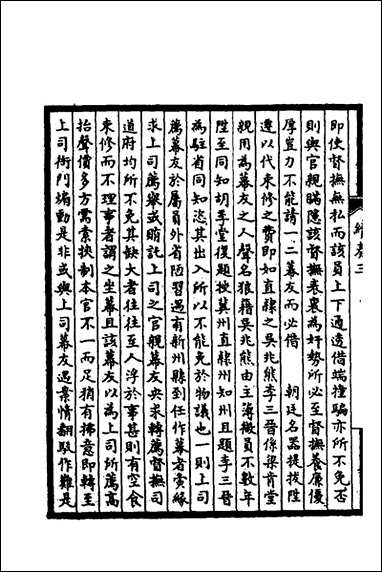 卷三
即使督撫無私而該員上下通透借端撞騙亦所不免否
則與官親瞞隱該督撫衮衮為奸勢所必至督撫養廉優
厚豈力不能請一二幕友而必借 朝廷名器提拔陞
遷以代束修之費即如直隸之吳兆熊李三晉係梁肯堂
親用為幕友之人聲名狼籍吳兆熊由主簿微員不數年
陞至同知胡季堂復題授冀州直隸州知州且題李三晉
為駐省同知恣其出入所以不能免於物議也一則上司
薦幕友於屬員外省陋習遇有新州縣到任作幕者夤緣
求上司薦舉或賄託上司之官親幕友央求轉薦督撫司
道府均所不免其缺大者往往至人浮於事甚則有空食
束修而不理事者謂之坐幕且該幕友以為上司所薦高
抬聲價多方需索挾制本官不一而足稍有拂意即轉至
上司衙門煽動是非或與上司幕友遇案情翻駁作難是